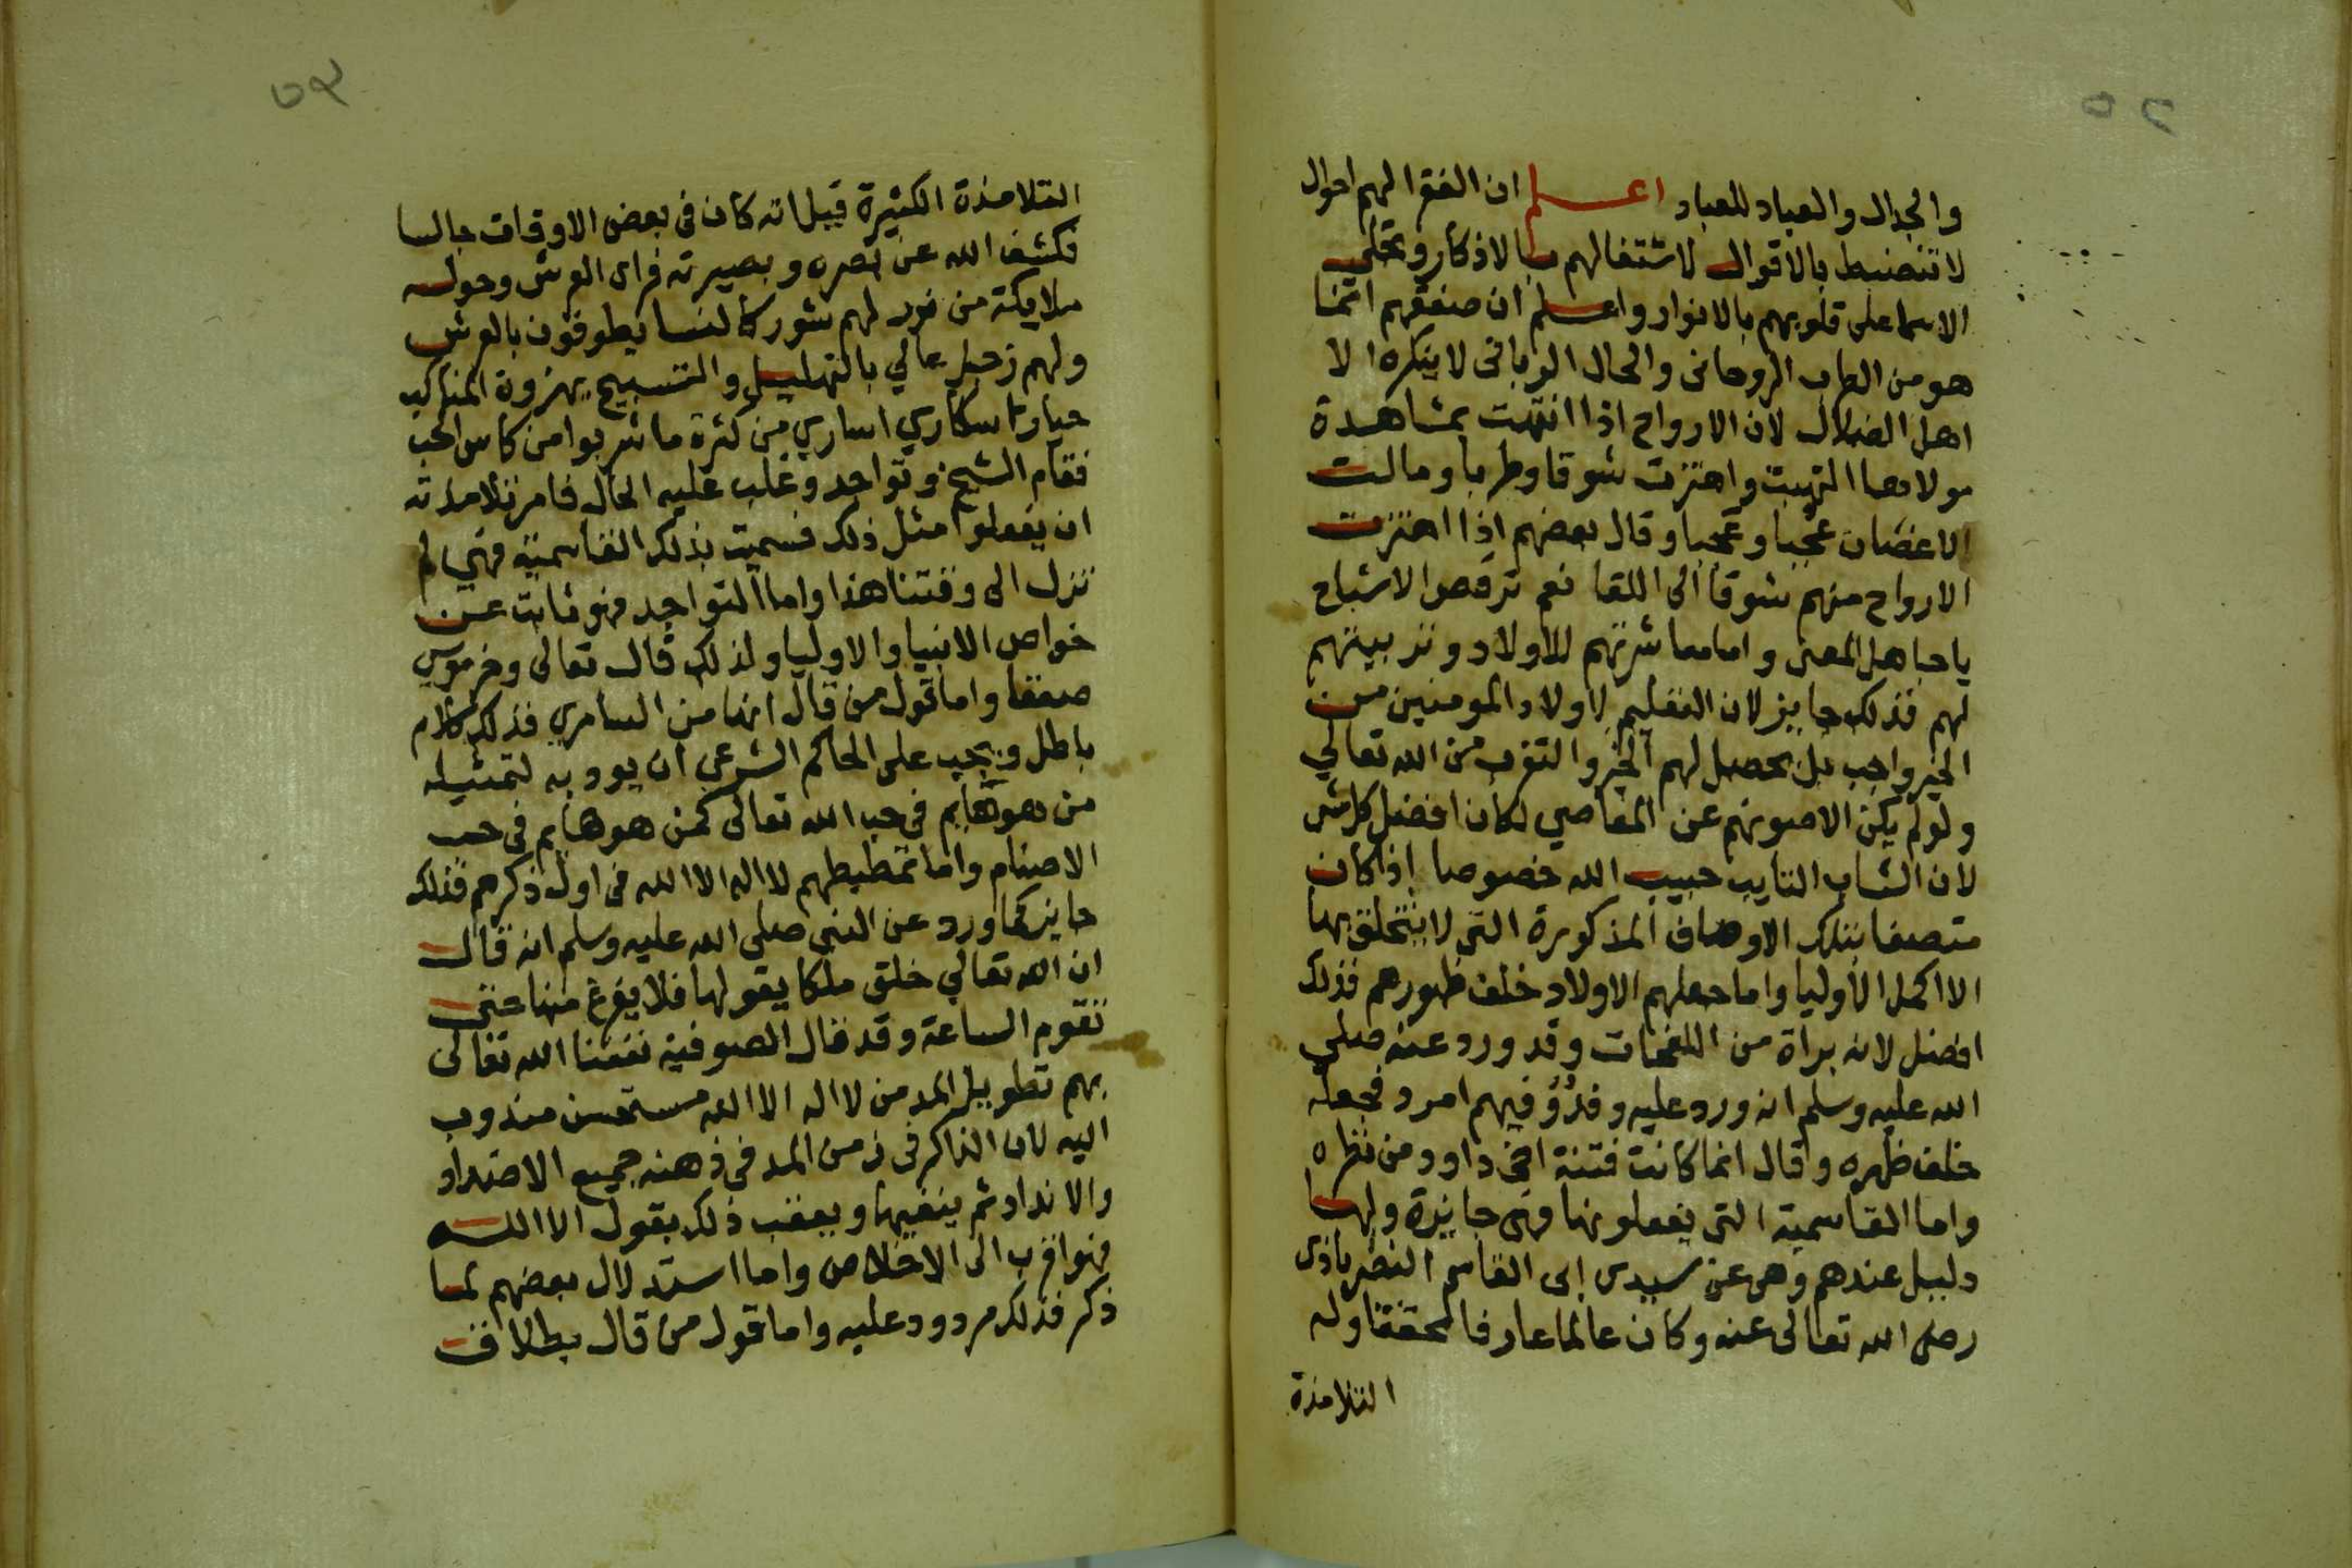 والجدال والعباد للعباد اعلم ان الفقرا لهم احوال
لا تنضبط بالاقوال لاشتغالهم بالاذكار وتجلي
الاسما على قلوبهم بالانوار واعلم ان صفقهم انما
هو من الطرب الروحاني والحال الرباني لا ينكره الا
اهل الضلال لان الارواح اذا انتهت بمشاهدة
مولاها التهبت واهتزت شوقا وطربا ومالت
الاغصان عجبا وعجبا وقال بعضهم اذا اهتزت
الارواح منهم شوقا الى اللقا نعم ترقص الاشباح
يا جاهل المعنى واما معاشرتهم للاولاد وتربيتهم
لهم فذلك جايز لان التعليم لاولاد المومنين من
الخير واجب بل يحصل لهم الخير والتقرب من الله تعالي
ولو لم يكن الا صونهم عن المعاصي لكان افضل كل شي
لان الشاب التايب حبيب الله خصوصا اذا كان
متصفا بتلك الاوصاف المذكورة التي لا يتخلق بها
الا اكمل الاوليا واما جعلهم الاولاد خلف ظهورهم فذلك
افضل لانه براة من اللفحات وقد ورد عنه صلي
الله عليه وسلم انه ورد عليه وفد وفيهم امرد فجعله
خلف ظهره وقال انما كانت فتنة اخي داوود من نظره
واما القاسمية التي يفعلونها فهي جايزة ولها
دليل عندهم وهي عن سيدي ابي القاسم النصر باذي
رضي الله تعالى عنه وكان عالما عارفا محققا وله
التلامذة
٥٢
التلامذة الكثيرة قيل انه كان في بعض الاوقات جالسا
فكشف الله عن بصره وبصيرته فراى العرش وحوله
ملايكة من نور لهم شعور كالنسا يطوفون بالعرش
ولهم زجل عالي بالتهليل والتسبيح يهزوة المناكب
حيارى سكاري اساري من كثرة ما شربوا من كاس الحب
فقام الشيخ وتواجد وغلب عليه الحال فامر تلامذته
ان يفعلوا مثل ذلك فسميت بذلك القاسمية فهي لم
تزل الى وقتنا هذا واما التواجد فهو ثابت عن
خواص الانبيا والاوليا ولذلك قال تعالى وخر موسى
صعقا واما قول من قال انها من السامري فذلك كلام
باطل ويجب على الحاكم الشرعي ان يودبه لتمثيله
من هو هايم في حب الله تعالى كمن هو هايم في حب
الاصنام واما تمطيطهم لا اله الا الله في اول ذكرهم فذلك
جايز كما ورد عن النبي صلى الله عليه وسلم انه قال
ان الله تعالي خلق ملكا يقولها فلا يفرغ منها حتى
تقوم الساعة وقد قال الصوفية نفعنا الله تعالى
بهم تطويل المد من لا اله الا الله مستحسن مندوب
اليه لان الذاكر في زمن المد في ذهنه جميع الاضداد
والانداد ثم ينفيها ويعقب ذلك بقول الا الله
فهو اقرب الى الاخلاص واما استدلال بعضهم لما
ذكر فذلك مردود عليه واما قول من قال بطلاق